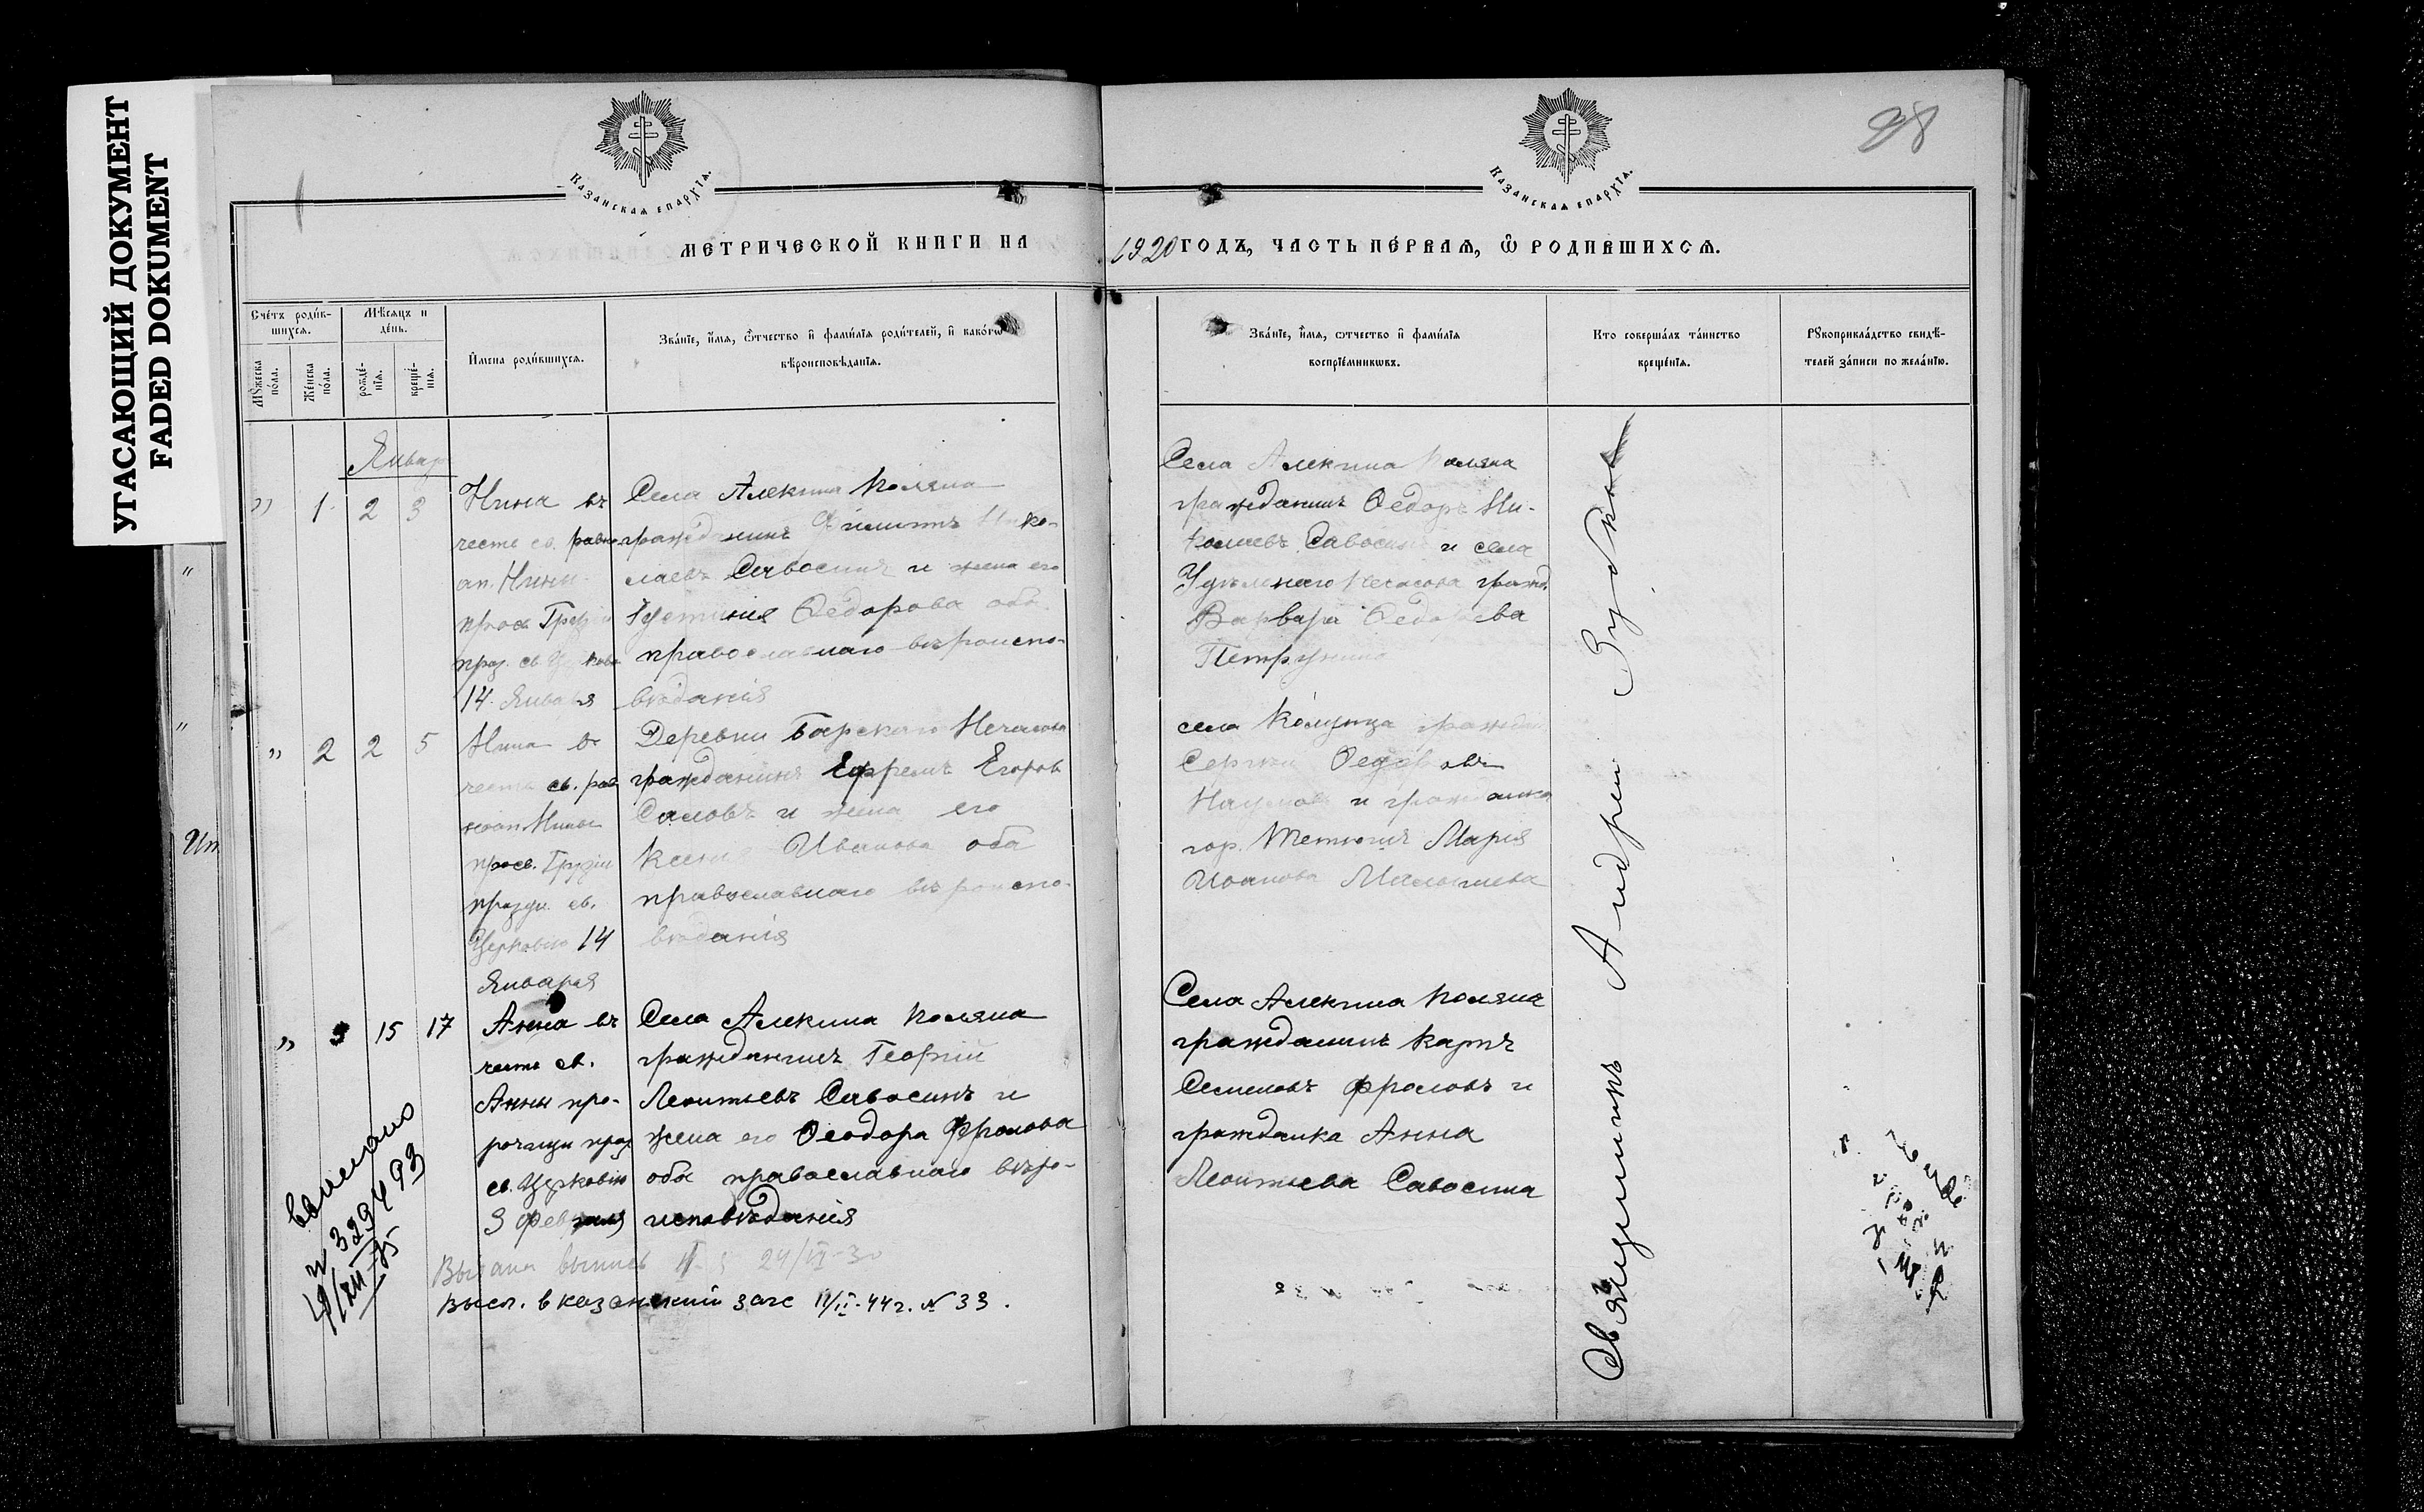 УГАСАЮЩИЙ ДОКУМЕНТ
FADED DOKUMENT
98
Казанская епархїѧ.
Казанская епархїѧ.
МЕТРИЧЕСКОЙ КНИГИ НА 1920 ГОДЪ, ЧАСТЬ ПЕ́РВАЯ, Ѽ РОДИВШИХСЯ.
Сче́тъ роди́вшихся.
Мѣ́сяцъ и де́нь.
Мꙋ́жеска по́ла.
Же́нска по́ла.
рожде́нїѧ.
креще́нїѧ.
И҆мена роди́вшихся.
Зва́нїе, и҆́мѧ, ѻ҆́тчество и҆ фами́лїѧ роди́телей, и҆ како́гѡ
вѣроисповѣ́данїѧ.
Зва́нїе, и҆́мѧ, ѻ҆́тчество и҆ фами́лїѧ
воспрїе́мникѡвъ.
Кто соверша́лъ та́инство
креще́нїѧ.
Рꙋкоприкла́дство свидѣ́-
телей за́писи по жела́нїю.
Январ
" 1 2 3
Нина въ
честь св. равно
ап. Нины
просв. Грузіи
праз. св. Церковію
14 Января
Села Алекина Поляна
гражданинъ Филиппъ Нико-
лаевъ Савосинъ и жена его
Устинія Ѳедорова оба
православнаго вѣроиспо-
вѣданія
Села Алекина Поляна
гражданинъ Ѳедоръ Ни-
колаевъ Савосинъ и села
Удѣльнаго Нечасова гражд.
Варвара Ѳедорова
Петрунина
" 2 2 5
Нина въ
честь св. рав
ноап. Нины
просв. Грузіи
праздн. св.
Церковію 14
Января
Деревни Барскаго Нечасова
гражданинъ Ефремъ Егоровъ
Саловъ и жена его
Ксенія Иванова оба
православнаго вѣроиспо-
вѣданія
села Колунца граждан
Сергѣй
и гражданка
гор. Тетюшъ Марія
Иванова Малышева
" 3 15 17
Анна въ
честь св.
Анны про-
рочицы праз
св. Церковію
3 февраля
Села Алекина Поляна
гражданинъ Георгій
Леонтьевъ Савосинъ и
жена его Ѳеодора Фролова
оба православнаго вѣро-
исповѣданія
Села Алекина Поляна
гражданинъ Карпъ
Семеновъ Фроловъ и
гражданка Анна
Леонтьева Савосина
Священникъ Андрей
выписано
№ 329493
Выдана выпись 24/II-30
Высл. в казанский загс 11/II-44 г. № 33.